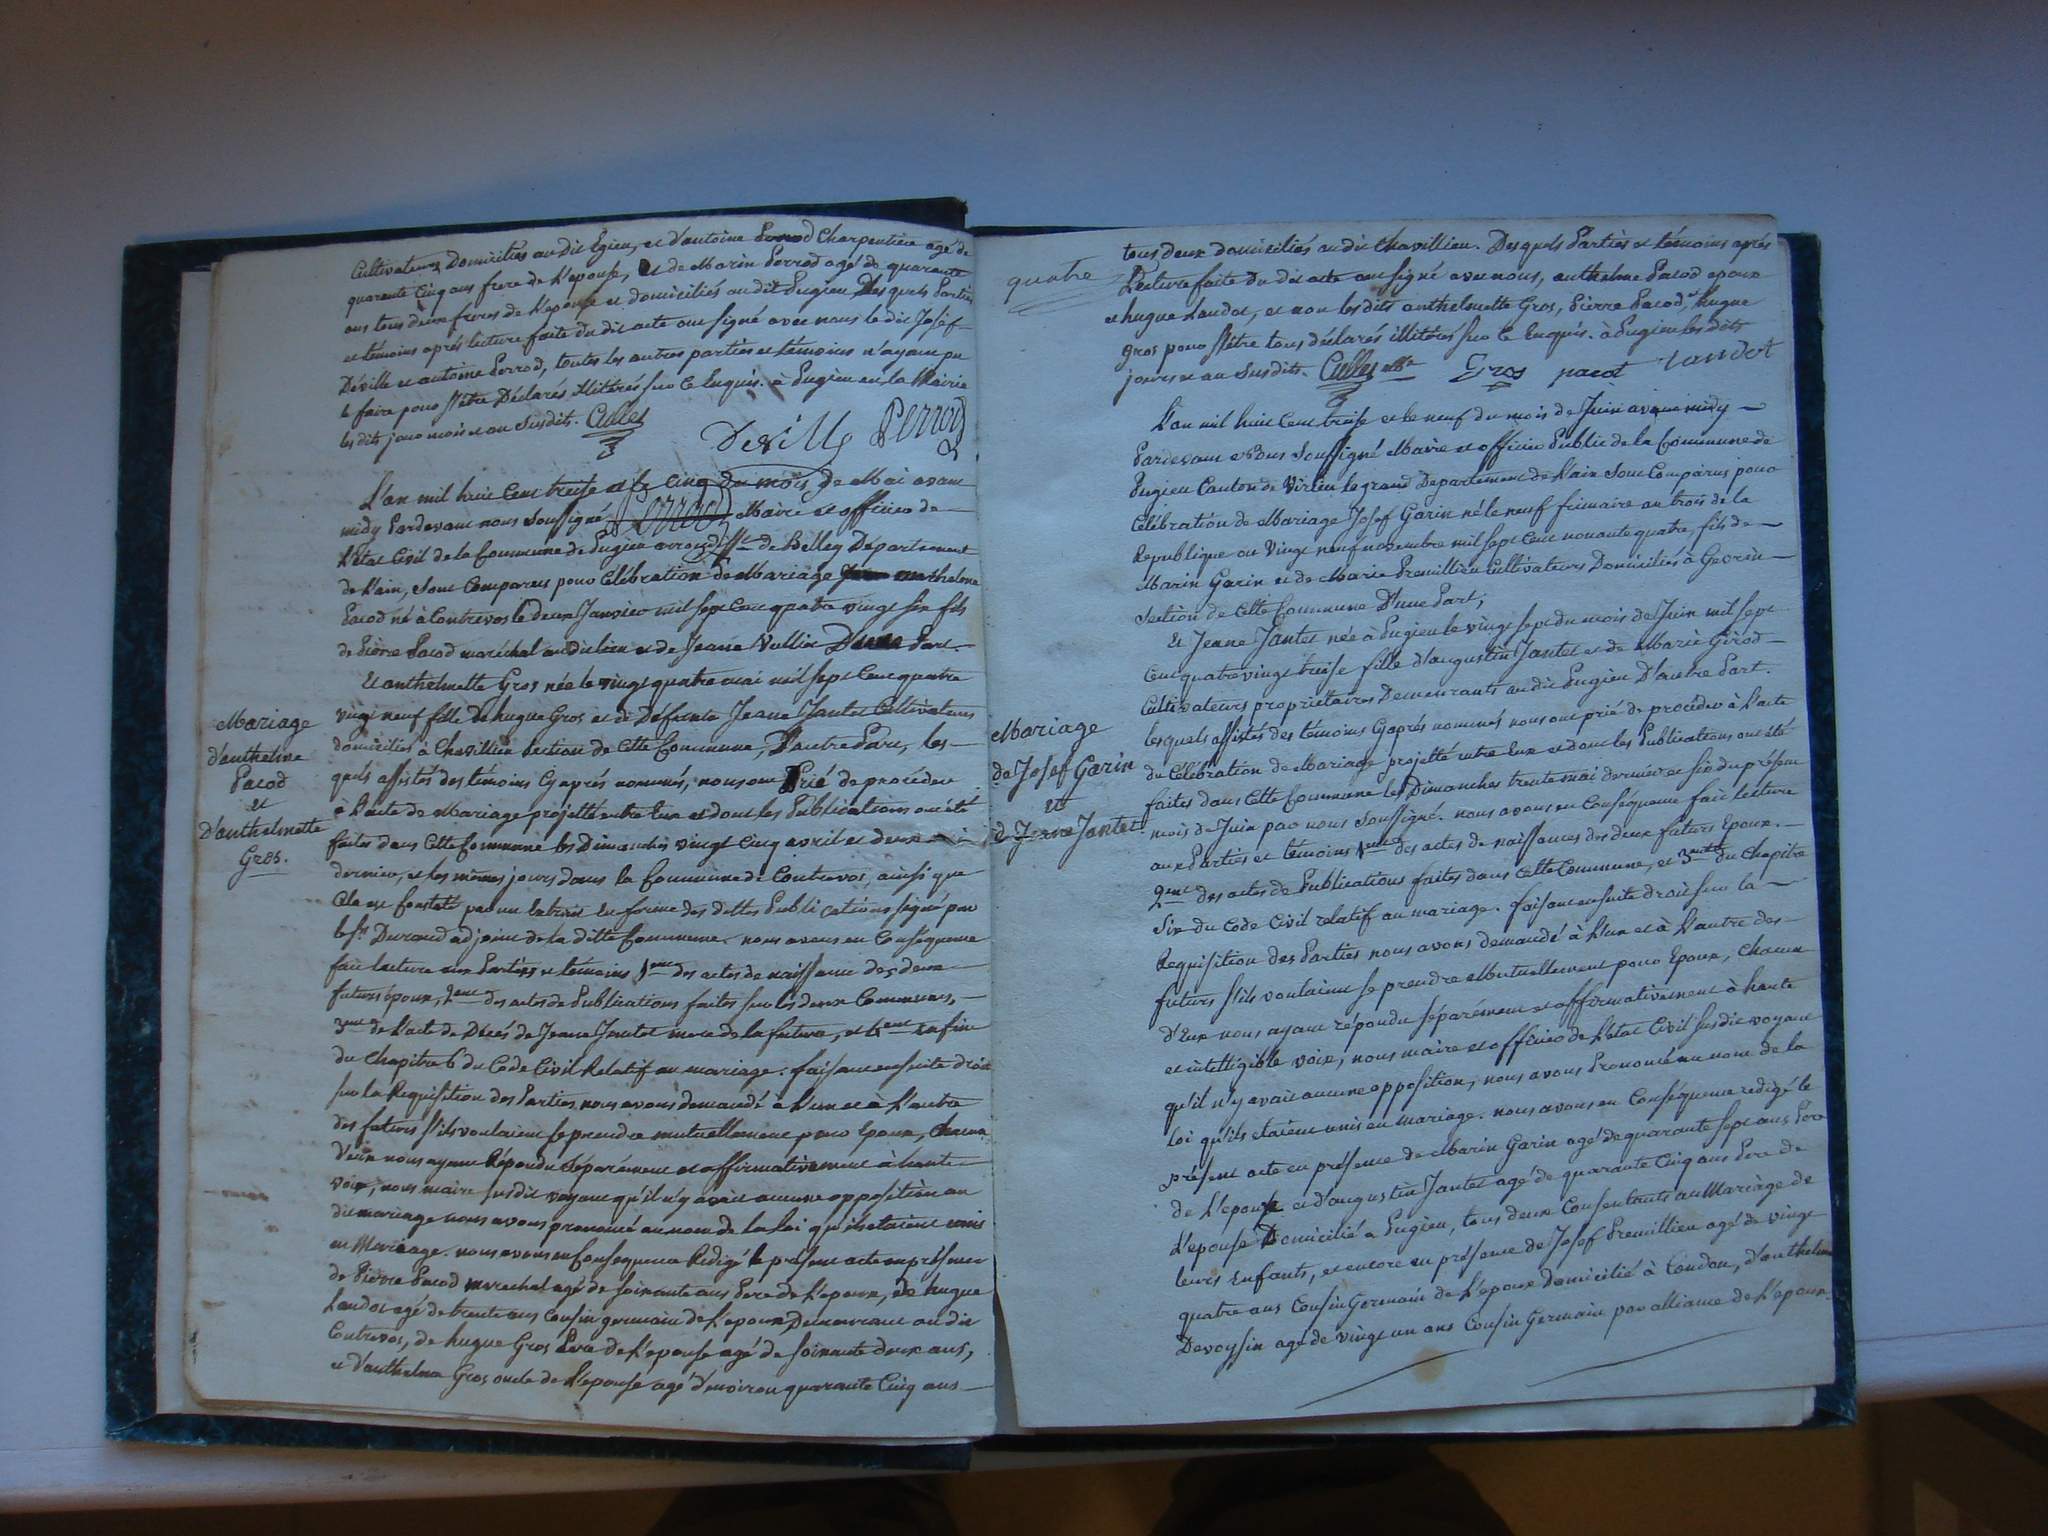 Cultivateurs Domiciliés au dit Egieu, et d'antoine Perrod Charpentier agé de
quarante Cinq ans frere de L'epouse, et de Marin Perrod agé de quarante
ans tous deux freres de L'epouse et domiciliés au dit Pugieu Des quels Parties
et témoins aprés lecture faite du dit acte ont signé avec nous le dit Joséf
Déville et antoine Perrod, toutes les autres parties et témoins n'ayant pu
le faire pour s'être Déclarés illittrés sur Ce Enquis. à Pugieu en la Mairie
les dits jour mois et an Susdits. Cullet
Deville Perrod
L'an mil huit Cent treise et le cinq du mois de Mai avant
midy Pardevant nous soussigné Maire et officier de
L'état Civil de la Commune de Pugieu arrondisst de Belley Département
de L'ain, sont Comparus pour Célébration de Mariage anthelme
Pacod né à Contrevos le deux Janvier mil sept Cent quatre vingt six fils
de Piérre Pacod maréchal au dit lieu et de Jeane Vullin D'une Part.
Et anthelmette Gros née le vingt quatre mai mil sept Cent quatre
vingt neuf fille de hugue Gros et de Défeinte Jeane Jantet Cultivateurs
domiciliés à Chavillieu section de Cette Commune, D'autre Part, les
quels assistés des témoins Cyaprés nommés, nous ont Prié de procéder
Mariage
d'anthelme
Pacod
et
D'anthelmette
Gros.
à L'acte de Mariage projetté entre Eux et dont les Publications ont été
faites dans Cette Commune les Dimanches vingt Cinq avril et deux mai
dernier, et les mêmes jours dans la Commune de Contrevos, ainsi que
Cela est Constaté par un Extrait En forme des dittes Publications signé par
le Sr Durand adjoint de la ditte Commune. nous avons en Conséquence
fait lecture aux Parties et témoins 1ment des actes de naissance des deux
futurs époux, 2ment des actes de Publications faites sur les deux Communes,
3ment de L'acte de Décés de Jeane Jantet mere de la future, et 4ment enfin
du Chapitre 6 du Code Civil Relatif au mariage: faisant ensuite droit
sur la Requisition des Parties nous avons demandé à L'un et à L'autre
des futurs s'ils voulaient se prendre mutuellement pour Epoux, Chacun
d'eux nous ayant Répondu séparément et affirmativement à haute
voix, nous maire susdit voyant qu'il n'y avait aucune opposition au
dit mariage nous avons prononcé au nom de la loi qu'ils étaient unis
en Mariage. nous avons en Conséquence Rédigé le présent acte en présence
de Piérre Pacod marechal agé de soixante ans Pere de L'epoux, de hugue
Landot agé de trente ans Cousin germain de L'epoux Demeurant au dit
Contrevos, de hugue Gros Pere de L'epouse agé de soixante deux ans,
et d'anthelme Gros oncle de L'epouse agé d'environ quarante Cinq ans
quatre
tous deux domiciliés au dit Chavillieu. Des quels Parties et témoins aprés
Lecture faite du dit acte ont signé avec nous, anthelme Pacod epoux
et hugue Landot, et non les dits anthelmette Gros, Piérre Pacod, et hugue
gros pour s'être tous déclarés illitérés sur Ce Enquis. à Pugieu les dits
jours et an Susdits. Cullet Gros pacot Landot
L'an mil huit Cent treise et le neuf du mois de Juin avant midy
Pardevant Nous Soussigné Maire et officier Public de la Commune de
Pugieu Canton de Virieu le grand Departement de L'ain Sont Comparus pour
Célébration de Mariage Josef Garin né le neuf frimaire an trois de la
Republique ou vingt neuf novembre mil sept Cent nonante quatre, fils de
Marin Garin et de Marie Premillieu Cultivateurs Domiciliés à Gevrin
Section de Cette Commune D'une Part,
Et Jeane Jantet née à Pugieu le vingt sept du mois de Juin mil sept
Cent quatre vingt treise fille d'augustin Jantet et de Marie Girod
Cultivateurs propriétaires Demeurants au dit Pugieu D'autre Part.
Mariage
de Josef Garin
et
de Jeane Jantet
les quels assistés des témoins Cyaprés nommés nous ont prié de procéder à L'acte
de Célébration de Mariage projetté entre Eux et dont les Publications ont été
faites dans Cette Commune les Dimanches trente mai dernier et six du présent
mois de Juin par nous soussigné. nous avons en Conséquence fait lecture
aux Parties et témoins 1ment des actes de naissances des deux futurs Epoux.
2ment des actes de Publications faites dans Cette Commune, et 3ment du Chapitre
Six du Code Civil relatif au mariage. faisant ensuite droit sur la
Requisition des Parties nous avons demandé à L'un et à L'autre des
futurs s'ils voulaient se prendre Mutuellement pour Epoux, Chacun
d'Eux nous ayant répondu séparément et affirmativement à haute
et intelligible voix, nous maire et officier de L'état Civil susdit voyant
qu'il n'y avait aucune opposition, nous avons Prononcé au nom de la
Loi qu'ils étaient unis en mariage. nous avons en Conséquence redigé le
présent acte en présence de Marin Garin agé de quarante sept ans Pere
de L'epoux et d'augustin Jantet agé de quarante Cinq ans Pere de
L'epouse Domicilié à Pugieu, tous deux Consentants au Mariage de
leurs Enfants, et encore en présence de Josef Premillieu agé de vingt
quatre ans Cousin Germain de L'epoux domicilié à Condon, d'anthelme
Devoysin agé de vingt un ans Cousin Germain par alliance de L'époux